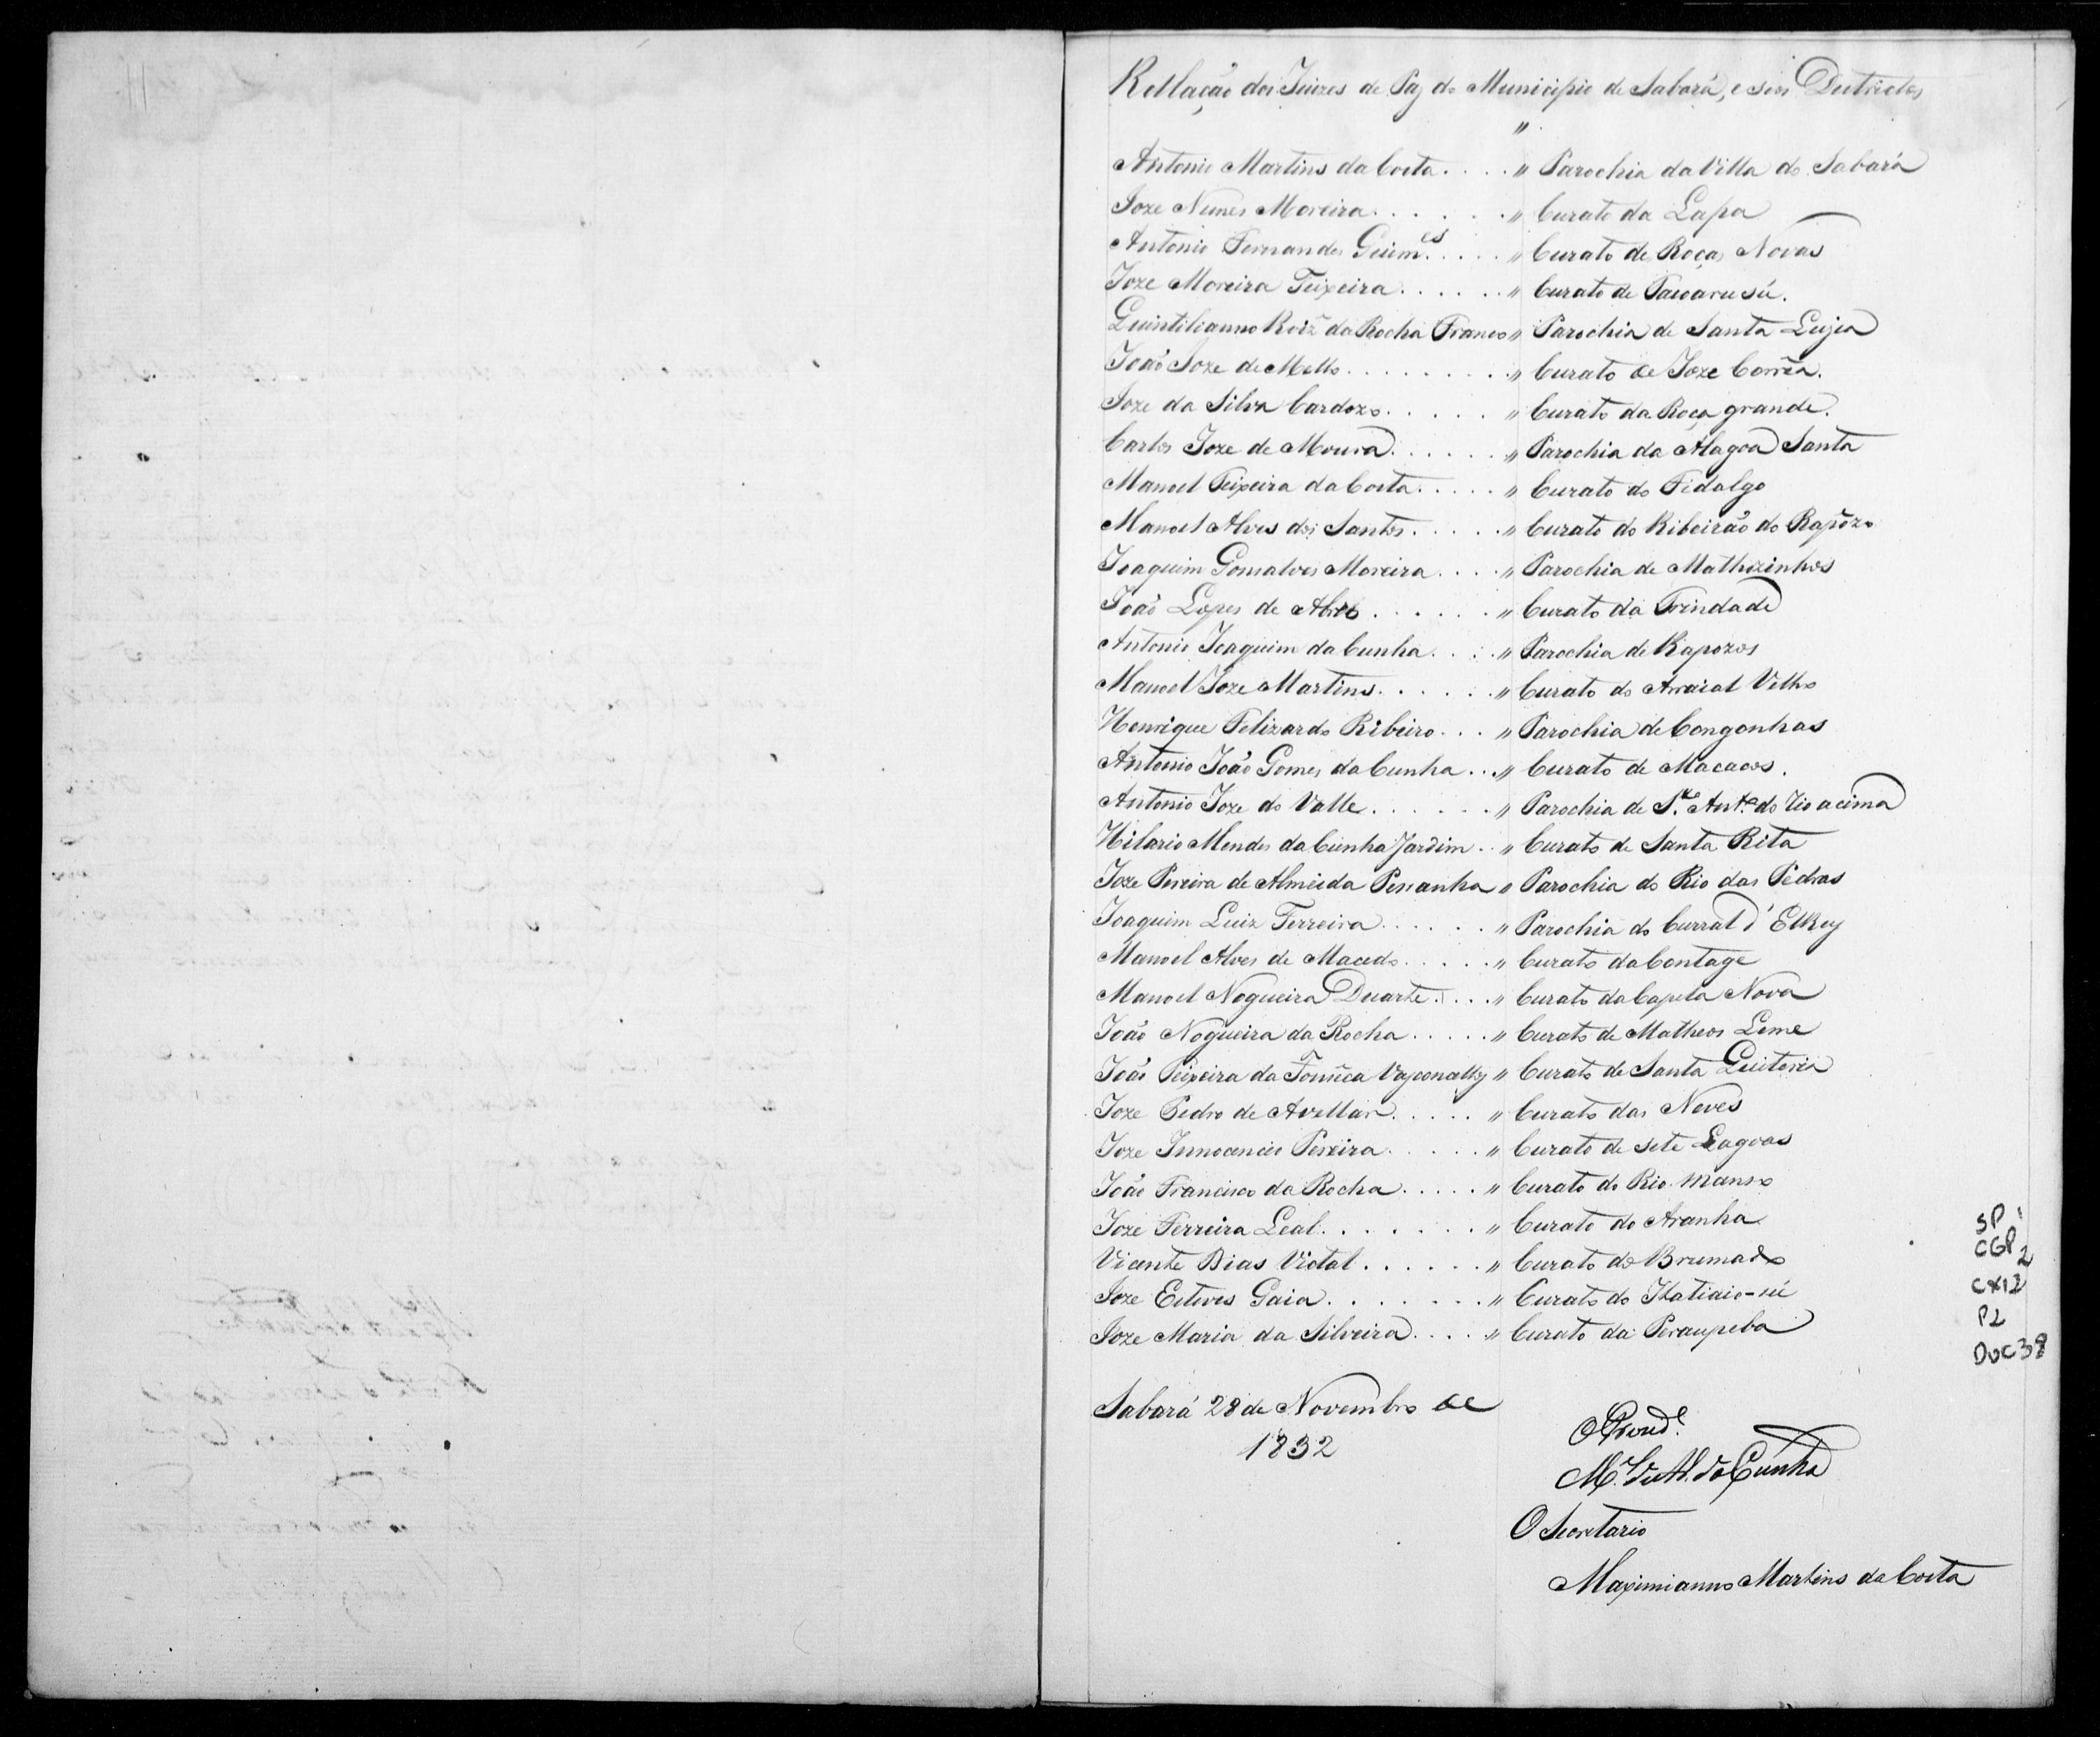 Rellação dos Juizes de Paz do Municipio de Sabará, e seos Destrictos
"
Antonio Martins da Costa . . . . " Parochia da Villa do Sabará
Joze Nunes Moreira . . . . . . " Curato da Lapa
Antonio Fernandes Guim.es . . . . " Curato de Roças Novas
Joze Moreira Teixeira . . . . . . " Curato de Tacoarusú.
Quintilianno Roiz da Rocha Franco " Parochia de Santa Luzia
João Joze de Mello . . . . . . . . . " Curato de Joze Corrêa.
Joze da Silva Cardozo . . . . . " Curato da Roça grande.
Carlos Joze de Moura . . . . . . " Parochia da Alagoa Santa
Manoel Teixeira da Costa . . . . . " Curato do Fidalgo
Manoel Alves dos Santos . . . . . " Curato do Ribeirão do Rapôzo
Joaquim Gonsalves Moreira . . . . " Parochia de Mathozinhos
João Lopes de Abreo . . . . . . " Curato da Trindade
Antonio Joaquim da Cunha . . . . " Parochia de Rapozos
Manoel Joze Martins . . . . . . " Curato do Arraial Velho
Henrique Felizardo Ribeiro . . . " Parochia de Congonhas
Antonio João Gomes da Cunha . . . " Curato de Macacos.
Antonio Joze do Valle . . . . . . " Parochia de S.to Ant.o do rio acima
Hilario Mendes da Cunha Jardim . . " Curato de Santa Rita
Joze Pereira de Almeida Pessanha " Parochia do Rio das Pedras
Joaquim Luiz Ferreira . . . . . . " Parochia do Curral d'ElRey
Manoel Alves de Macedo . . . . . " Curato da Contage
Manoel Nogueira Duarte . . . . " Curato da Capela Nova
João Nogueira da Rocha . . . . . " Curato de Matheos Leme
João Teixeira da Fonseca Vasconcellos " Curato de Santa Quiteria
Joze Pedro de Avellar . . . . . " Curato das Neves
Joze Innocencio Pereira . . . . . " Curato de sete Lagoas
João Francisco da Rocha . . . . . " Curato do Rio manso
Joze Ferreira Leal . . . . . . . " Curato do Aranha
Vicente Dias Vidal . . . . . . " Curato do Brumado
Joze Esteves Gaia . . . . . . . " Curato do Itatiaio-sú
Joze Maria da Silveira . . . . " Curato da Peraupeba
SP 1
CGP 2
CX12
P2
DOC 38
Sabará 28 de Novembro de
1832
O Prezid.e
M.el da Cunha
O Secretario
Maximianno Martins da Costa